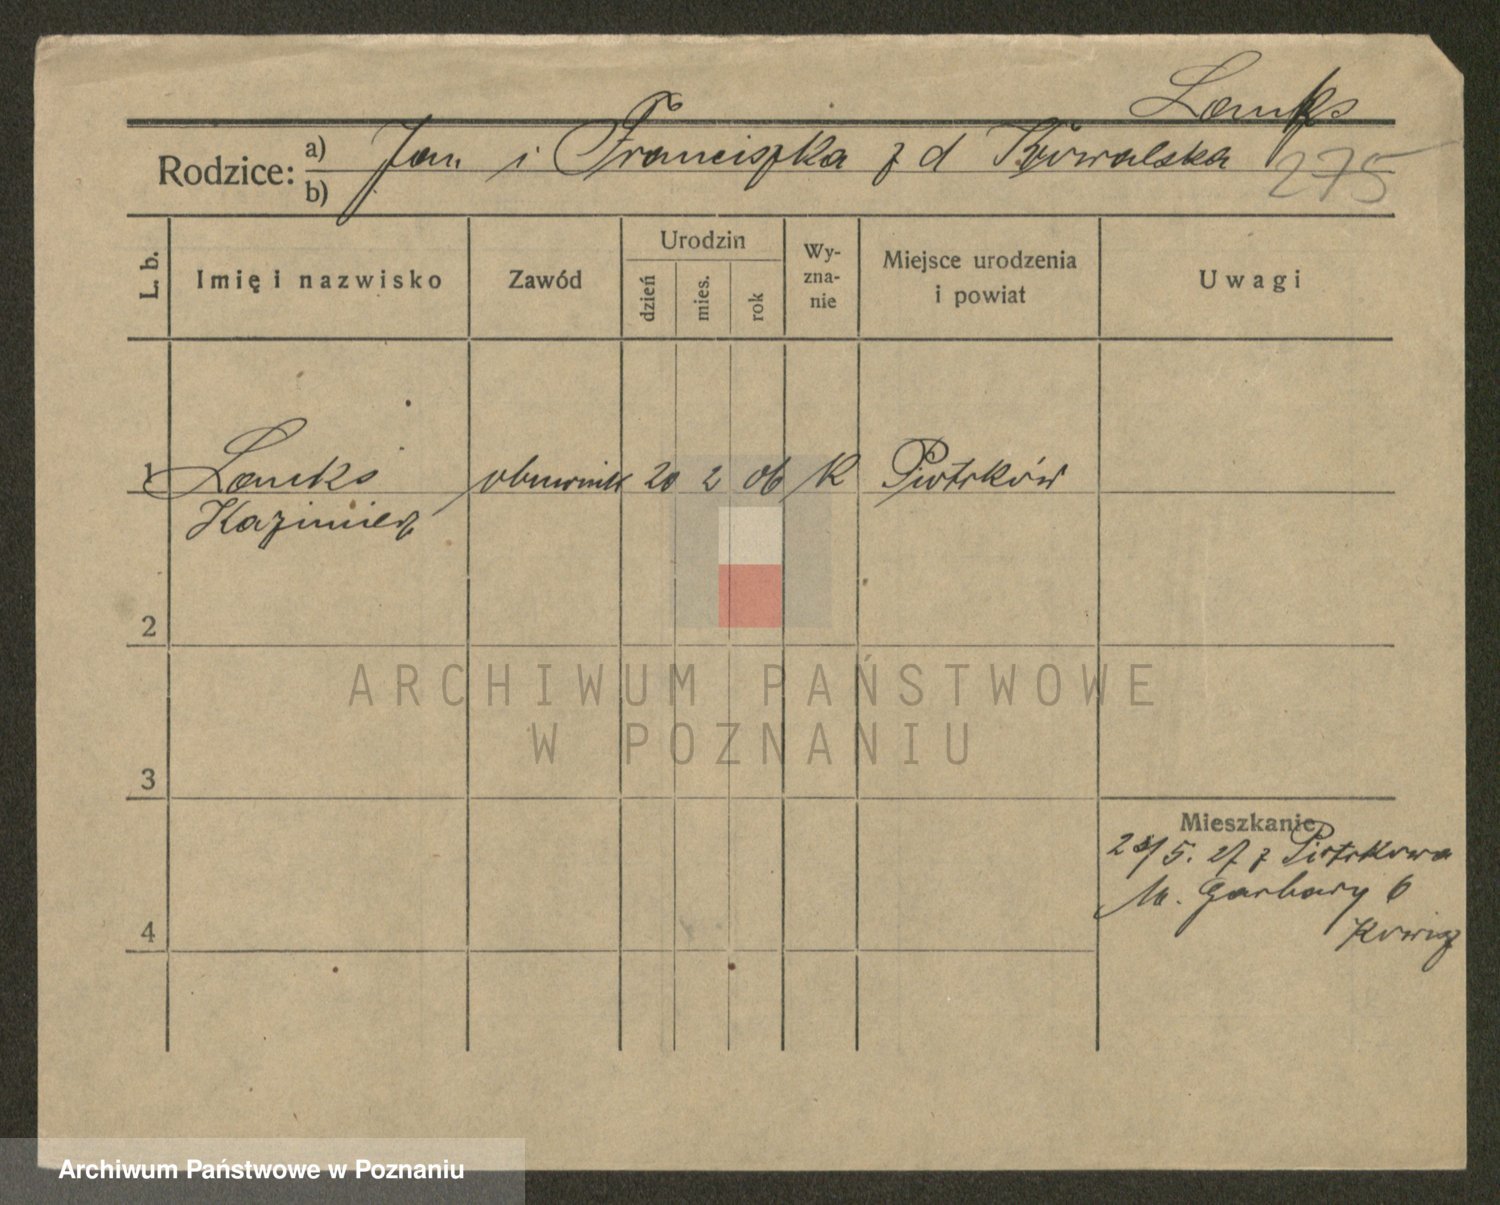 Lamks
Rodzice: a) Jan i Franciszka z d Kowalska
b)
275
L. b.
Imię i nazwisko
Zawód
Urodzin
dzień
mies.
rok
Wy-
zna-
nie
Miejsce urodzenia
i powiat
Uwagi
1 Lamks obuwnik 20 2 06 K Piotrków
Kazimierz
2
ARCHIWUM PAŃSTWOWE
W POZNANIU
3
Mieszkanie
5. 27 z Piotrkowa
M. Garbary 6
4
Archiwum Państwowe w Poznaniu